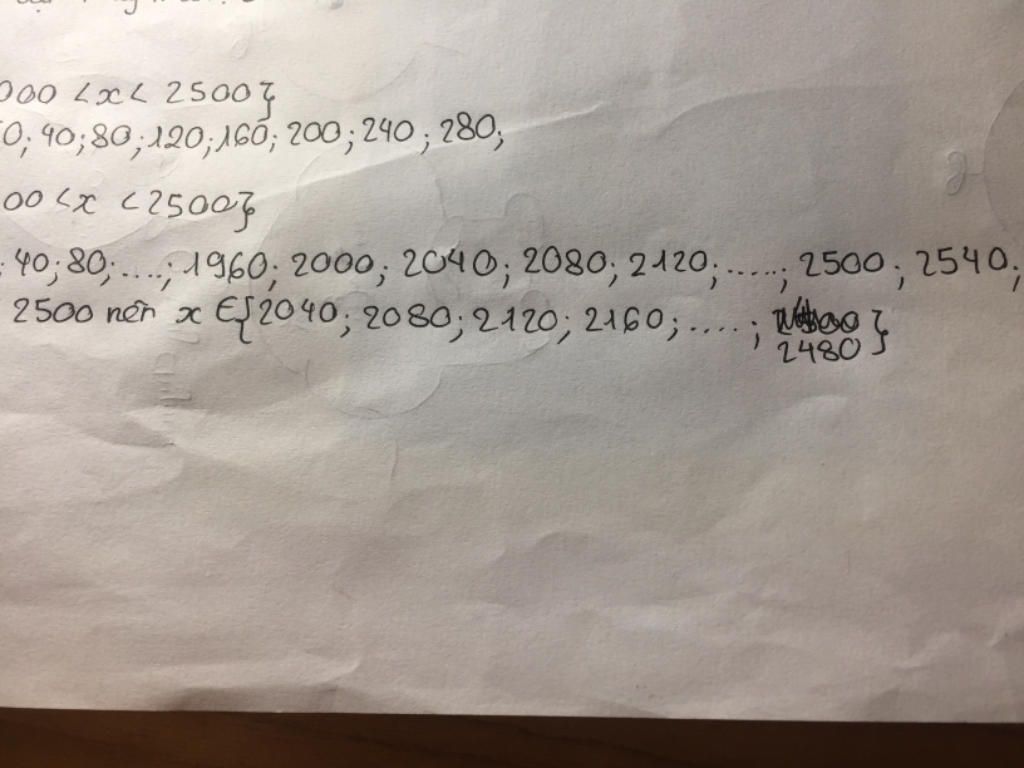 000 < x < 2500}
0; 40; 80; 120; 160; 200; 240; 280;
00 < x < 2500}
; 40; 80; ....; 1960; 2000; 2040; 2080; 2120; .....; 2500; 2540;
2500 nên x ∈ {2040; 2080; 2120; 2160; ....; }
2480